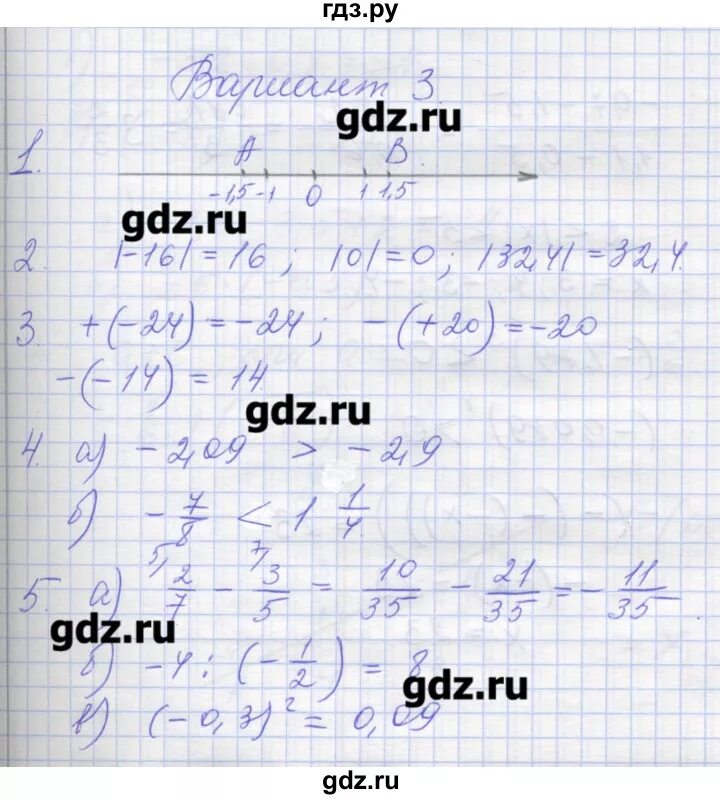 гдз.ру
Вариант 3.
gdz.ru
1. A B.
-1,5 -1 0 1 1,5
gdz.ru
2. |-16| = 16 ; |0| = 0 ; |32,4| = 32,4.
3 +(-24) = -24 ; -(+20) = -20
-(-14) = 14.
gdz.ru
4. а) -2,09 > -2,9
б) -7/8 < 1 1/4
5. а) 5, 2/7 - 7, 3/5 = 10/35 - 21/35 = -11/35.
gdz.ru
б) -4 : (-1/2) = 8
gdz.ru
в) (-0,3)² = 0,09
gdz.ru